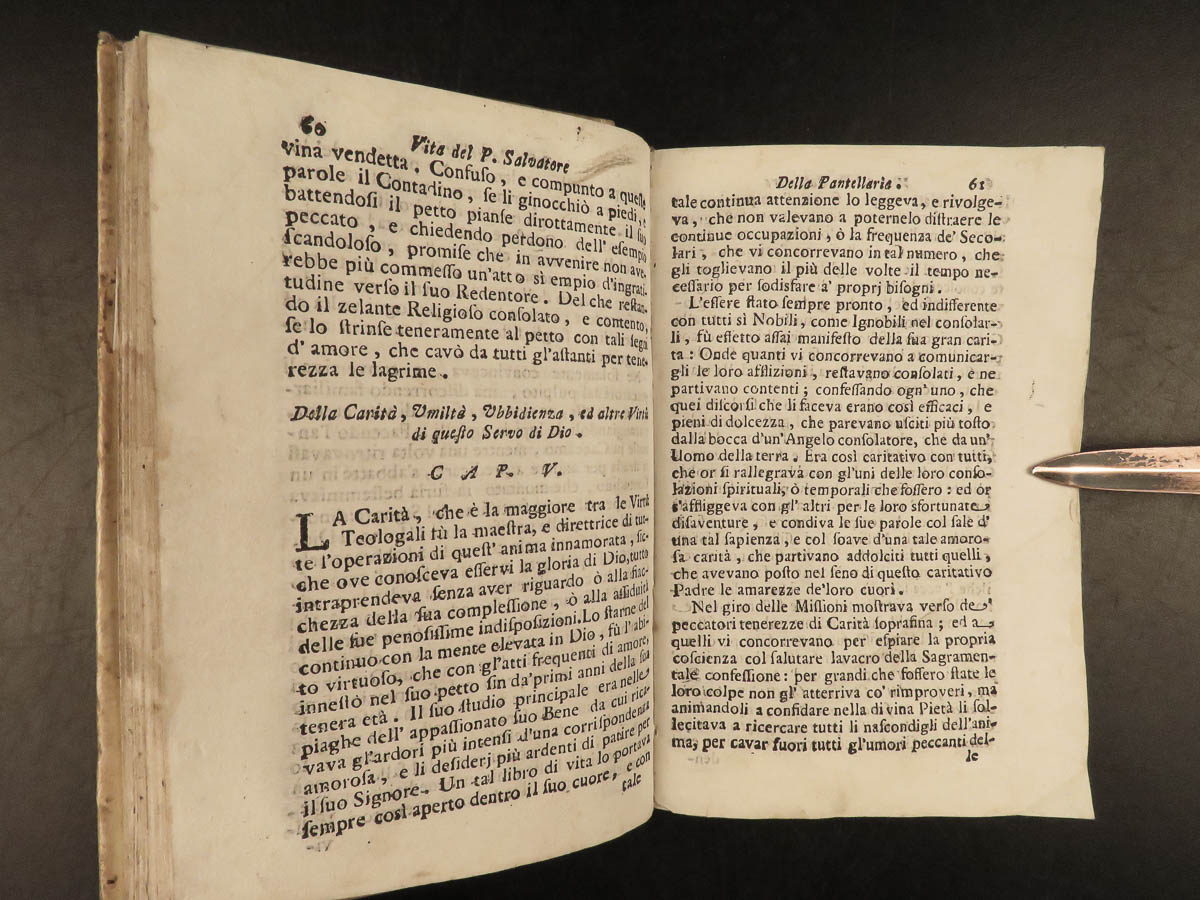 60
Vita del P. Salvatore
vina vendetta. Confuſo, e compunto a queſte
parole il Contadino, ſe li ginocchiò a piedi, e
battendoſi il petto pianſe dirottamente il ſuo
peccato, e chiedendo perdono dell' eſempio
ſcandoloſo, promiſe che in avvenire non ave-
rebbe più commeſſo un'atto sì empio d'ingrati-
tudine verſo il ſuo Redentore. Del che reſtan-
do il zelante Religioſo conſolato, e contento,
ſe lo ſtrinſe teneramente al petto con tali ſegni
d' amore, che cavò da tutti gl'aſtanti per tene-
rezza le lagrime.
Della Carità, Vmiltà, Vbbidienza, ed altre Virtù
di queſto Servo di Dio.
C A P. V.
LA Carità, che è la maggiore tra le Virtù
Teologali fù la maeſtra, e direttrice di tut-
te l'operazioni di queſt' anima innamorata, ſic-
che ove conoſceva eſſervi la gloria di Dio, tutto
intraprendeva ſenza aver riguardo ò alla fiac-
chezza della ſua compleſſione, ò alla aſſiduità
delle ſue penoſiſſime indiſpoſizioni. Lo ſtarne del
continuo con la mente elevata in Dio, fù l'abi-
to virtuoſo, che con gl'atti frequenti di amore,
inneſtò nel ſuo petto ſin da'primi anni della ſua
tenera età. Il ſuo ſtudio principale era nelle
piaghe dell' appaſſionato ſuo Bene da cui rica-
vava gl'ardori più intenſi d'una corriſpondenza
amoroſa, e li deſiderj più ardenti di patire per
il ſuo Signore. Un tal libro di vita lo portava
ſempre così aperto dentro il ſuo cuore, e con
tale
Della Pantellaria.
61
tale continua attenzione lo leggeva, e rivolge-
va, che non valevano a poternelo diſtraere le
continue occupazioni, ò la frequenza de' Seco-
lari, che vi concorrevano in tal numero, che
gli toglievano il più delle volte il tempo ne-
ceſſario per ſodisfare a' proprj biſogni.
L'eſſere ſtato ſempre pronto, ed indifferente
con tutti sì Nobili, come Ignobili nel conſolar-
li, fù effetto aſſai manifeſto della ſua gran cari-
ta: Onde quanti vi concorrevano a comunicar-
gli le loro afflizioni, reſtavano conſolati, e ne
partivano contenti; confeſſando ogn'uno, che
quei diſcorſi che li faceva erano così efficaci, e
pieni di dolcezza, che parevano uſciti più toſto
dalla bocca d'un'Angelo conſolatore, che da un'
Uomo della terra. Era così caritativo con tutti,
che or ſi rallegrava con gl'uni delle loro conſo-
lazioni ſpirituali, ò temporali che foſſero: ed or
s'affliggeva con gl' altri per le loro sfortunate
diſaventure, e condiva le ſue parole col ſale d'
una tal ſapienza, e col ſoave d'una tale amoro-
ſa carità, che partivano addolciti tutti quelli,
che avevano poſto nel ſeno di queſto caritativo
Padre le amarezze de'loro cuori.
Nel giro delle Miſſioni moſtrava verſo de'
peccatori tenerezze di Carità ſoprafina; ed a
quelli vi concorrevano per eſpiare la propria
coſcienza col ſalutare lavacro della Sagramen-
tale confeſſione: per grandi che foſſero ſtate le
loro colpe non gl' atterriva co' rimproveri, ma
animandoli a confidare nella divina Pietà li ſol-
lecitava a ricercare tutti li naſcondigli dell'ani-
ma, per cavar fuori tutti gl'umori peccanti del-
le